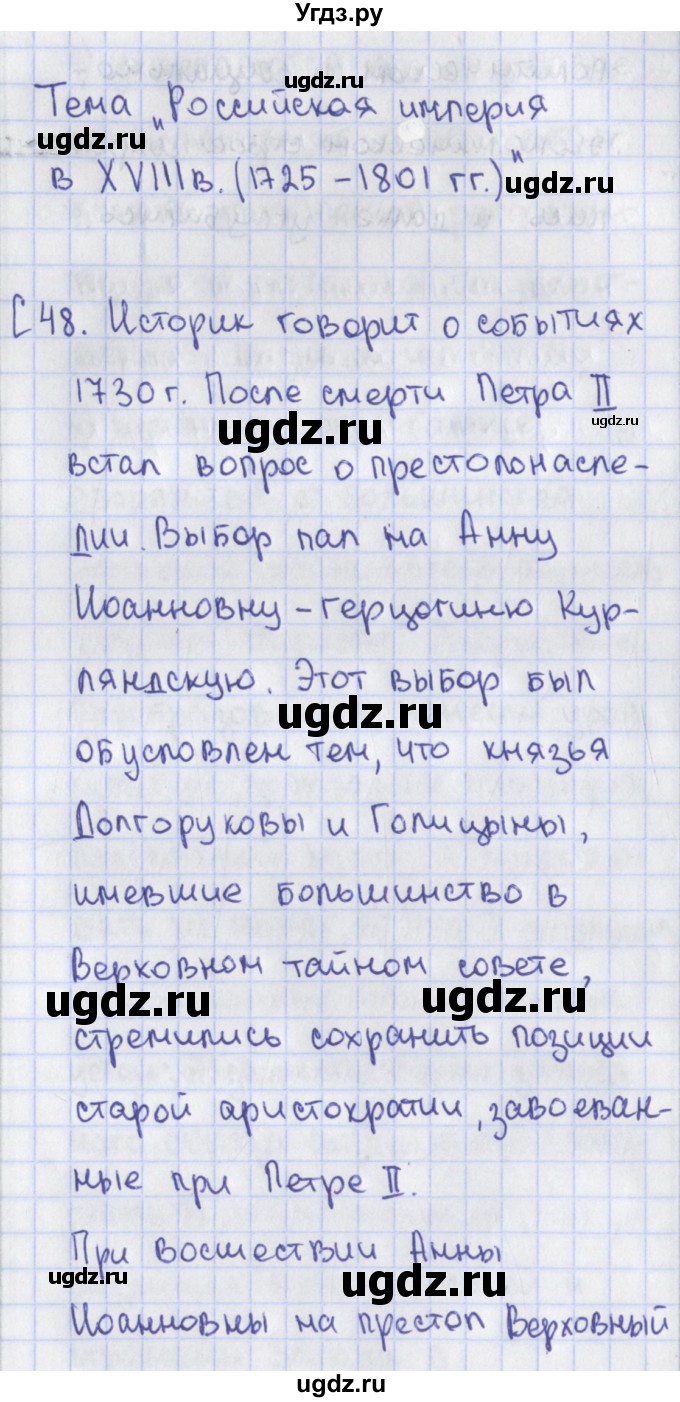 Угдз.ру
ugdz.ru
Тема „Российская империя
ugdz.ru
ugdz.ru
в XVIII в. (1725 – 1801 гг.)"
ugdz.ru
[48. Историк говорит о событиях
1730 г. После смерти Петра II
ugdz.ru
ugdz.ru
встал вопрос о престолонасле-
дии. Выбор пал на Анну
Иоанновну – герцогиню Кур-
ляндскую. Этот выбор был
ugdz.ru
обусловлен тем, что князья
Долгоруковы и Голицыны,
имевшие большинство в
Верховном тайном совете,
ugdz.ru
ugdz.ru
стремились сохранить позиции
старой аристократии, завоеван-
ные при Петре II.
При восшествии Анны
ugdz.ru
ugdz.ru
Иоанновны на престол Верховный
ugdz.ru